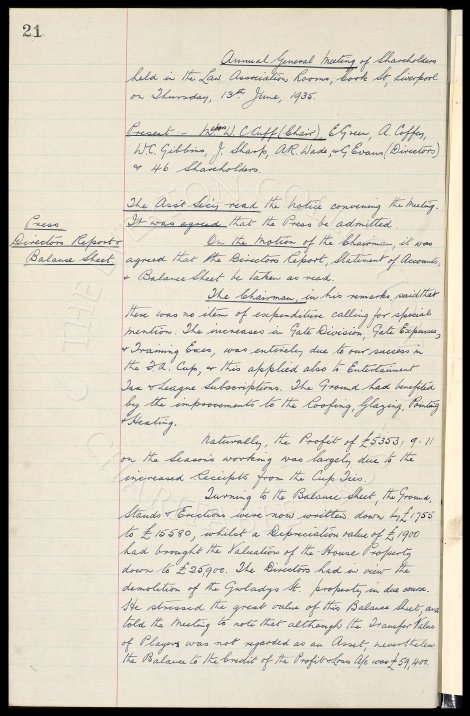 21
Annual General Meeting of Shareholders
held in the Law Association Rooms, Cook St, Liverpool
on Thursday, 13th June, 1935.
Present :- Messrs W.C. Cuff, (Chair), E Green, A. Coffey,
W.C. Gibbins, J. Sharp, A.R. Wade, & G Evans (Directors)
& 46 Shareholders.
The Asst Secy read the notice convening the Meeting.
Press
It was agreed that the Press be admitted.
Directors Report &
On the Motion of the Chairman, it was
Balance Sheet
agreed that the Directors Report, Statement of Accounts,
& Balance Sheet be taken as read.
The Chairman, in his remarks, said that
there was no item of expenditure calling for special
mention. The increases in Gate Division, Gate Expenses,
& Training Exes, was entirely due to our success in
the F.A. Cup, & this applied also to Entertainment
Tax & League Subscriptions. The Ground had benefited
by the improvements to the Roofing, Glazing, Painting
& Heating.
Naturally, the Profit of £5353 : 9 : 11
on the Season's working was largely due to the
increased Receipts from the Cup Ties.
Turning to the Balance Sheet, the Ground,
Stands & Erections were now written down by £1755
to £15580, whilst a Depreciation value of £1900
had brought the Valuation of the House Property
down to £25,900. The Directors had in view the
demolition of the Gwladys St. property in due course.
He stressed the great value of this Balance Sheet, and
told the Meeting to note that although the Transfer Value
of Players was not regarded as an Asset, nevertheless
the Balance to the Credit of the Profit & Loss A/c was £59,400.